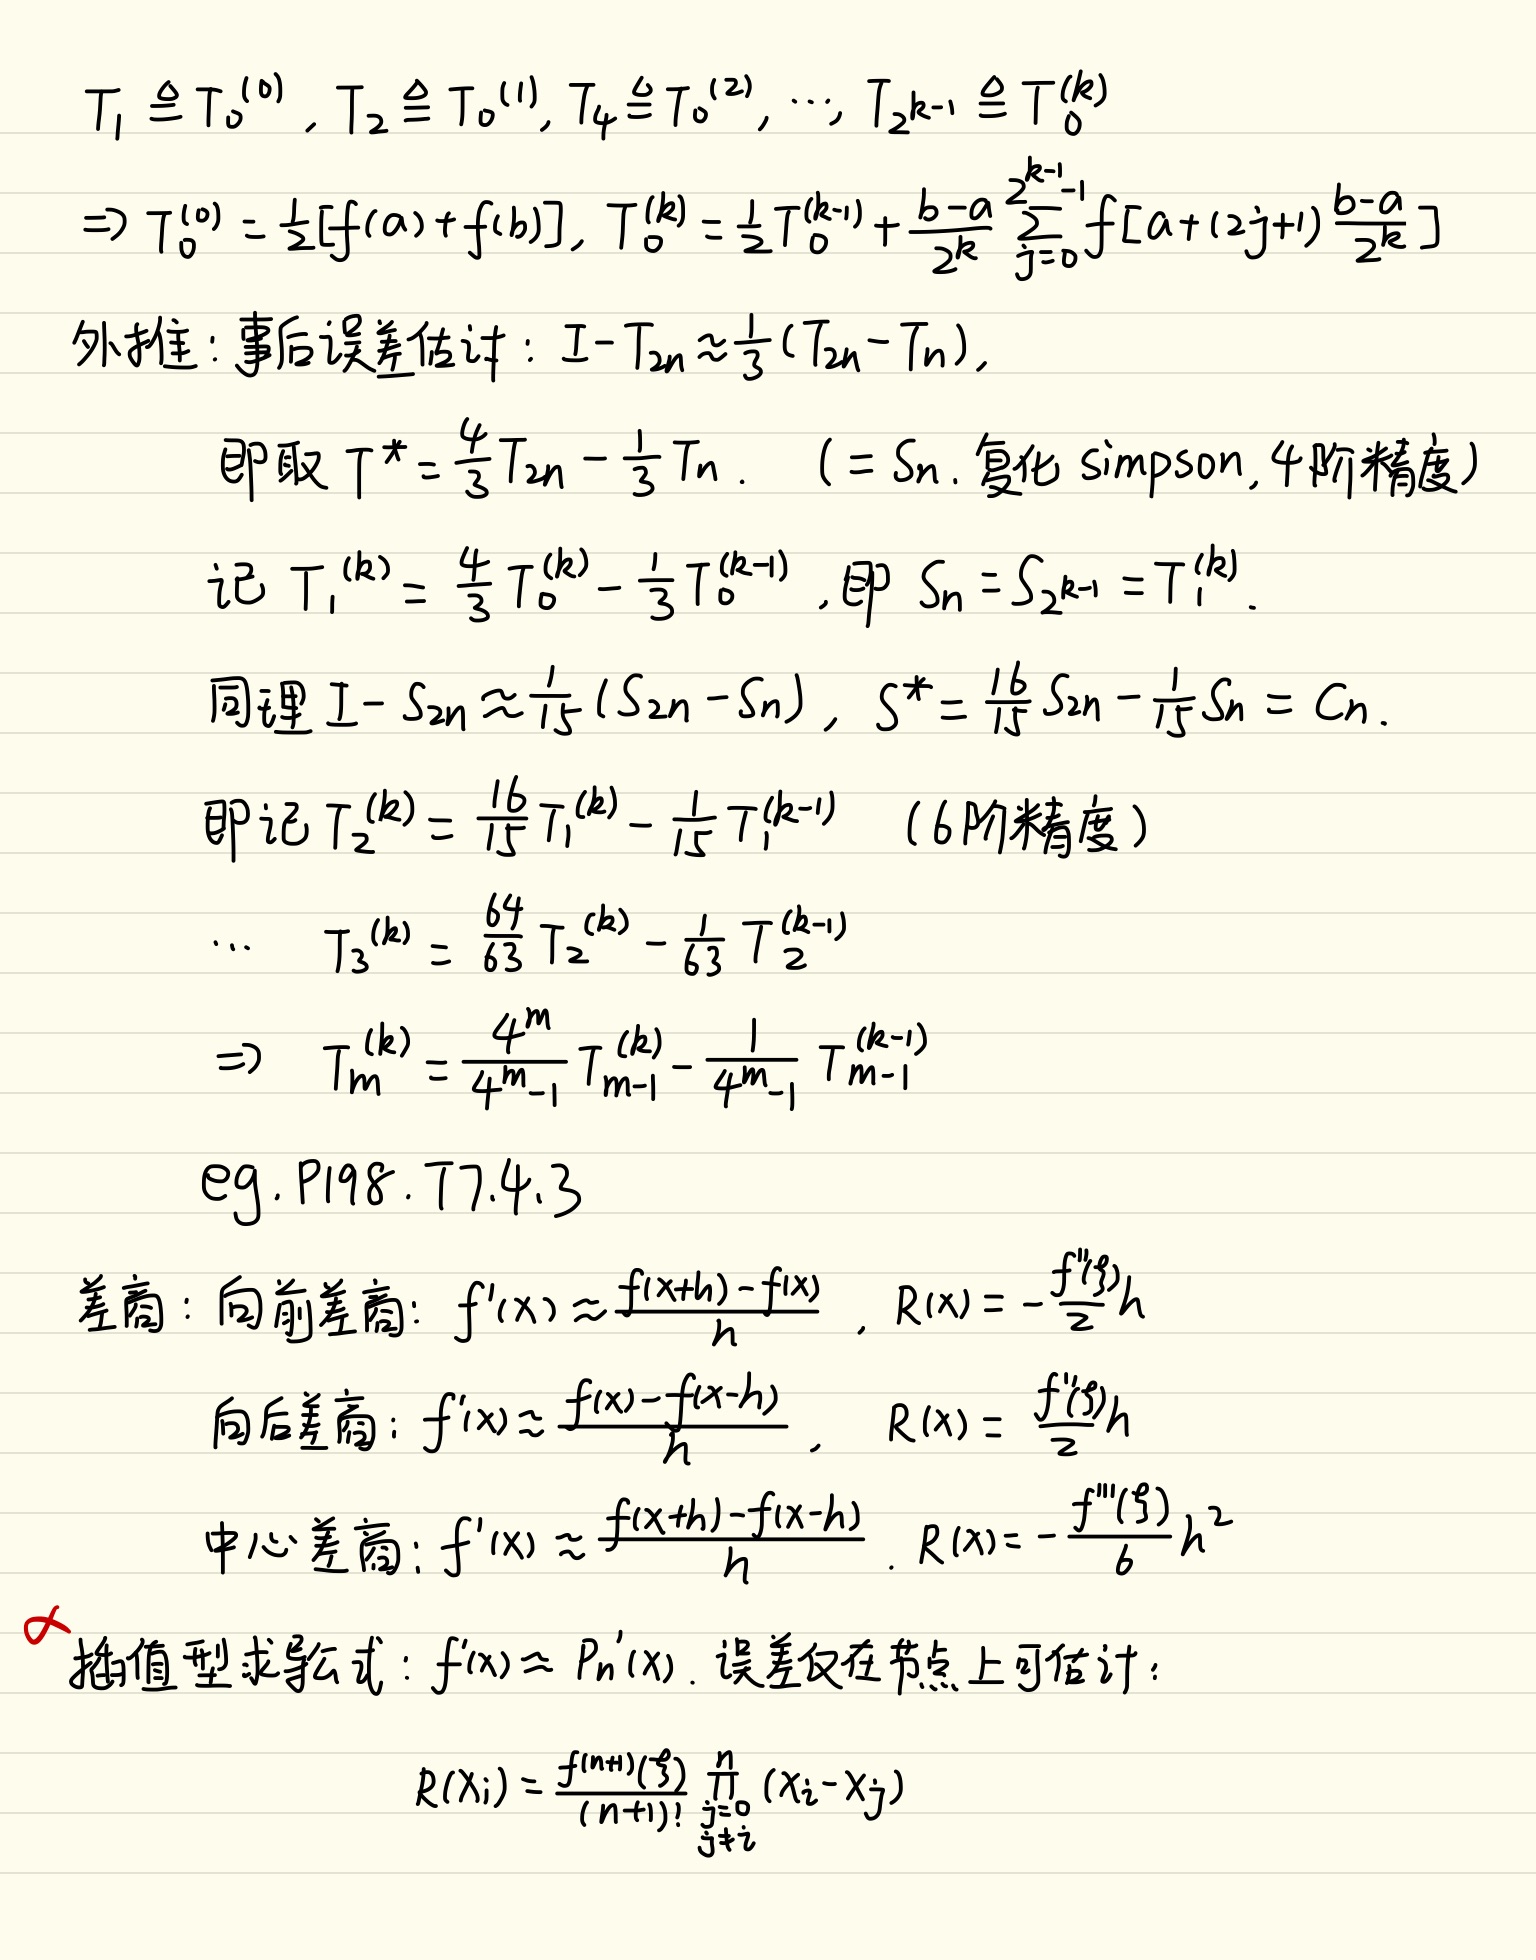 T₁ ≜ T₀⁽⁰⁾, T₂ ≜ T₀⁽¹⁾, T₄ ≜ T₀⁽²⁾, ⋯, T_{2^{k-1}} ≜ T₀^{(k)}
⇒ T₀⁽⁰⁾ = 1/2[f(a)+f(b)], T₀^{(k)} = 1/2 T₀^{(k-1)} + (b-a)/2^k ∑_{j=0}^{2^{k-1}-1} f[a+(2j+1) (b-a)/2^k]
外推: 事后误差估计: I-T_{2n} ≈ 1/3 (T_{2n}-T_n),
即取 T* = 4/3 T_{2n} - 1/3 T_n. (= S_n. 复化 simpson, 4阶精度)
记 T₁^{(k)} = 4/3 T₀^{(k)} - 1/3 T₀^{(k-1)}, 即 S_n = S_{2^{k-1}} = T₁^{(k)}.
同理 I-S_{2n} ≈ 1/15 (S_{2n}-S_n), S* = 16/15 S_{2n} - 1/15 S_n = C_n.
即记 T₂^{(k)} = 16/15 T₁^{(k)} - 1/15 T₁^{(k-1)} (6阶精度)
⋯ T₃^{(k)} = 64/63 T₂^{(k)} - 1/63 T₂^{(k-1)}
⇒ T_m^{(k)} = 4^m/(4^m-1) T_{m-1}^{(k)} - 1/(4^m-1) T_{m-1}^{(k-1)}
eg. P198. T7.4.3
差商: 向前差商: f'(x) ≈ (f(x+h)-f(x))/h, R(x) = -f''(ξ)/2 h
向后差商: f'(x) ≈ (f(x)-f(x-h))/h, R(x) = f''(ξ)/2 h
中心差商: f'(x) ≈ (f(x+h)-f(x-h))/h. R(x) = -f'''(ξ)/6 h²
插值型求导公式: f'(x) ≈ P_n'(x). 误差仅在节点上可估计:
R(x_i) = f^{(n+1)}(ξ)/(n+1)! ∏_{j=0, j≠i}^{n} (x_i-x_j)